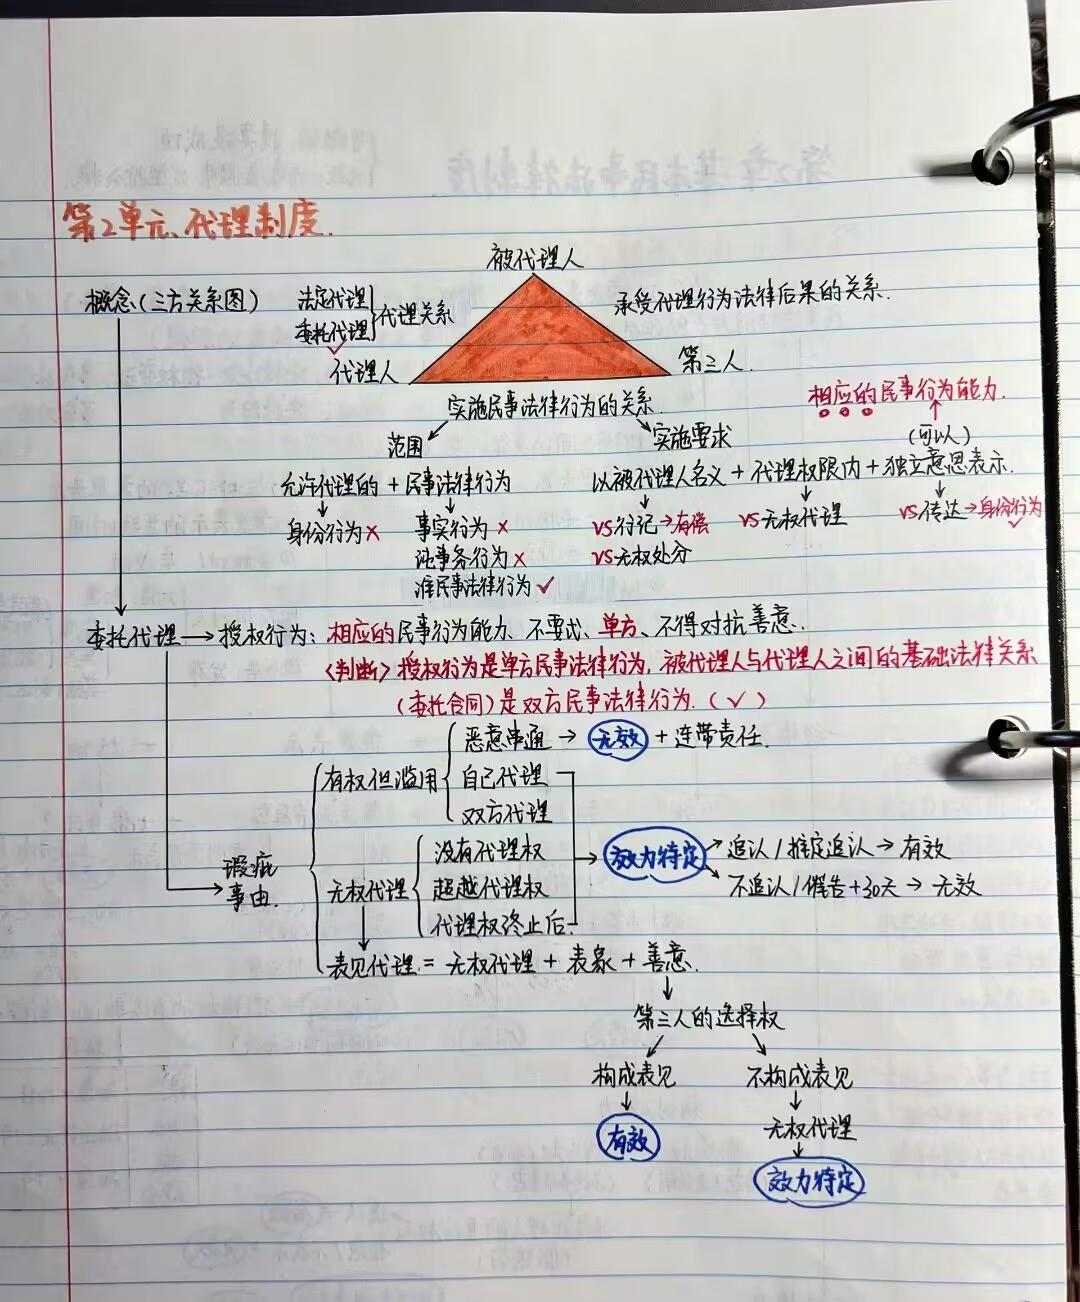 第2单元、代理制度.
被代理人
概念(三方关系图)
法定代理
委托代理
✓
代理关系
承受代理行为法律后果的关系.
代理人
第三人.
实施民事法律行为的关系.
相应的民事行为能力.
范围
实施要求
(可以)
允许代理的 + 民事法律行为
以被代理人名义 + 代理权限内 + 独立意思表示.
身份行为×
事实行为 ×
VS行记→有偿
VS无权代理
VS传达→身份行为✓
证事务行为×
VS无权处分
准民事法律行为✓
委托代理→授权行为: 相应的民事行为能力、不要式、单方、不得对抗善意.
〈判断〉授权行为是单方民事法律行为, 被代理人与代理人之间的基础法律关系
(委托合同)是双方民事法律行为. (✓)
恶意串通 → 无效 + 连带责任.
有权但滥用
自己代理
双方代理
没有代理权
效力待定
追认/推定追认→有效
瑕疵
事由.
无权代理
超越代理权
不追认/催告+30天→无效
代理权终止后
表见代理 = 无权代理 + 表象 + 善意.
第三人的选择权
构成表见
不构成表见
有效
无权代理
效力待定